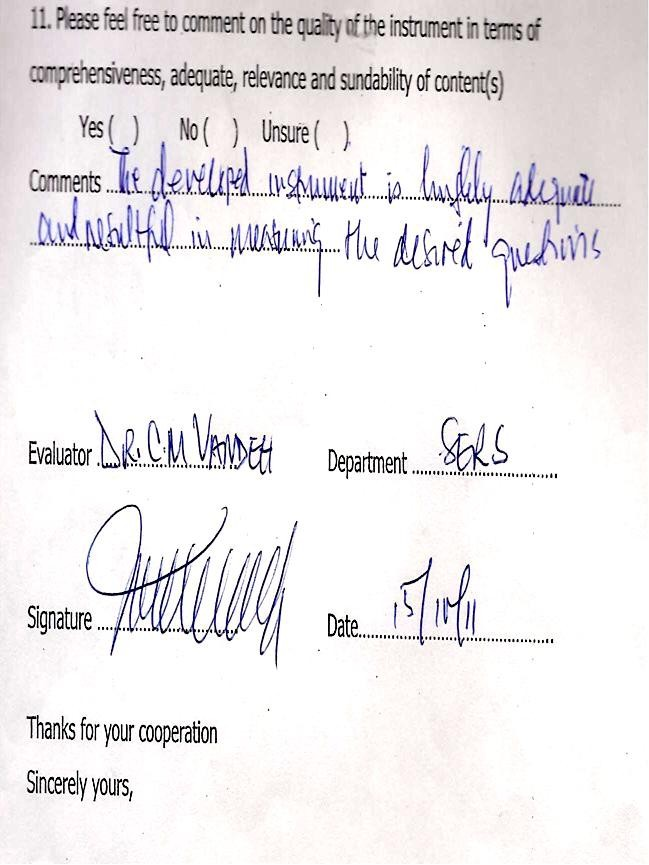 11. Please feel free to comment on the quality of the instrument in terms of
comprehensiveness, adequate, relevance and sundability of content(s)
Yes ( ) No ( ) Unsure ( ).
Comments The developed instrument is highly adequate
and resultful in measuring the desired questions
Evaluator DR. C.M VANDEH Department SERS
Signature Date 15/10/11
Thanks for your cooperation
Sincerely yours,